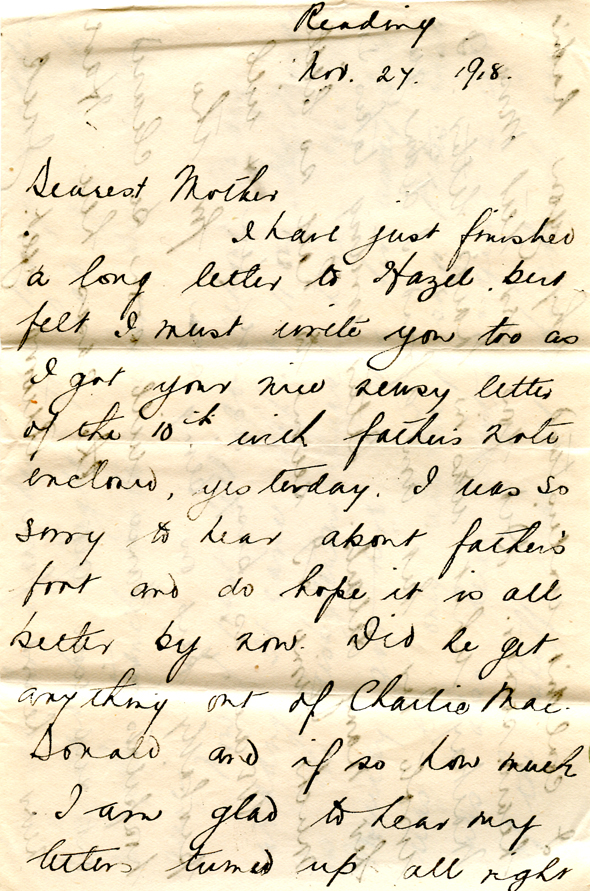 Reading
Nov. 27. 1918.
Dearest Mother
I have just finished
a long letter to Hazel but
felt I must write you too as
I got your nice newsy letter
of the 10th with father's note
enclosed, yesterday. I was so
sorry to hear about father's
foot and do hope it is all
better by now. Did he get
anything out of Charlie Mac.
Donald and if so how much
. I am glad to hear my
letters turned up all right